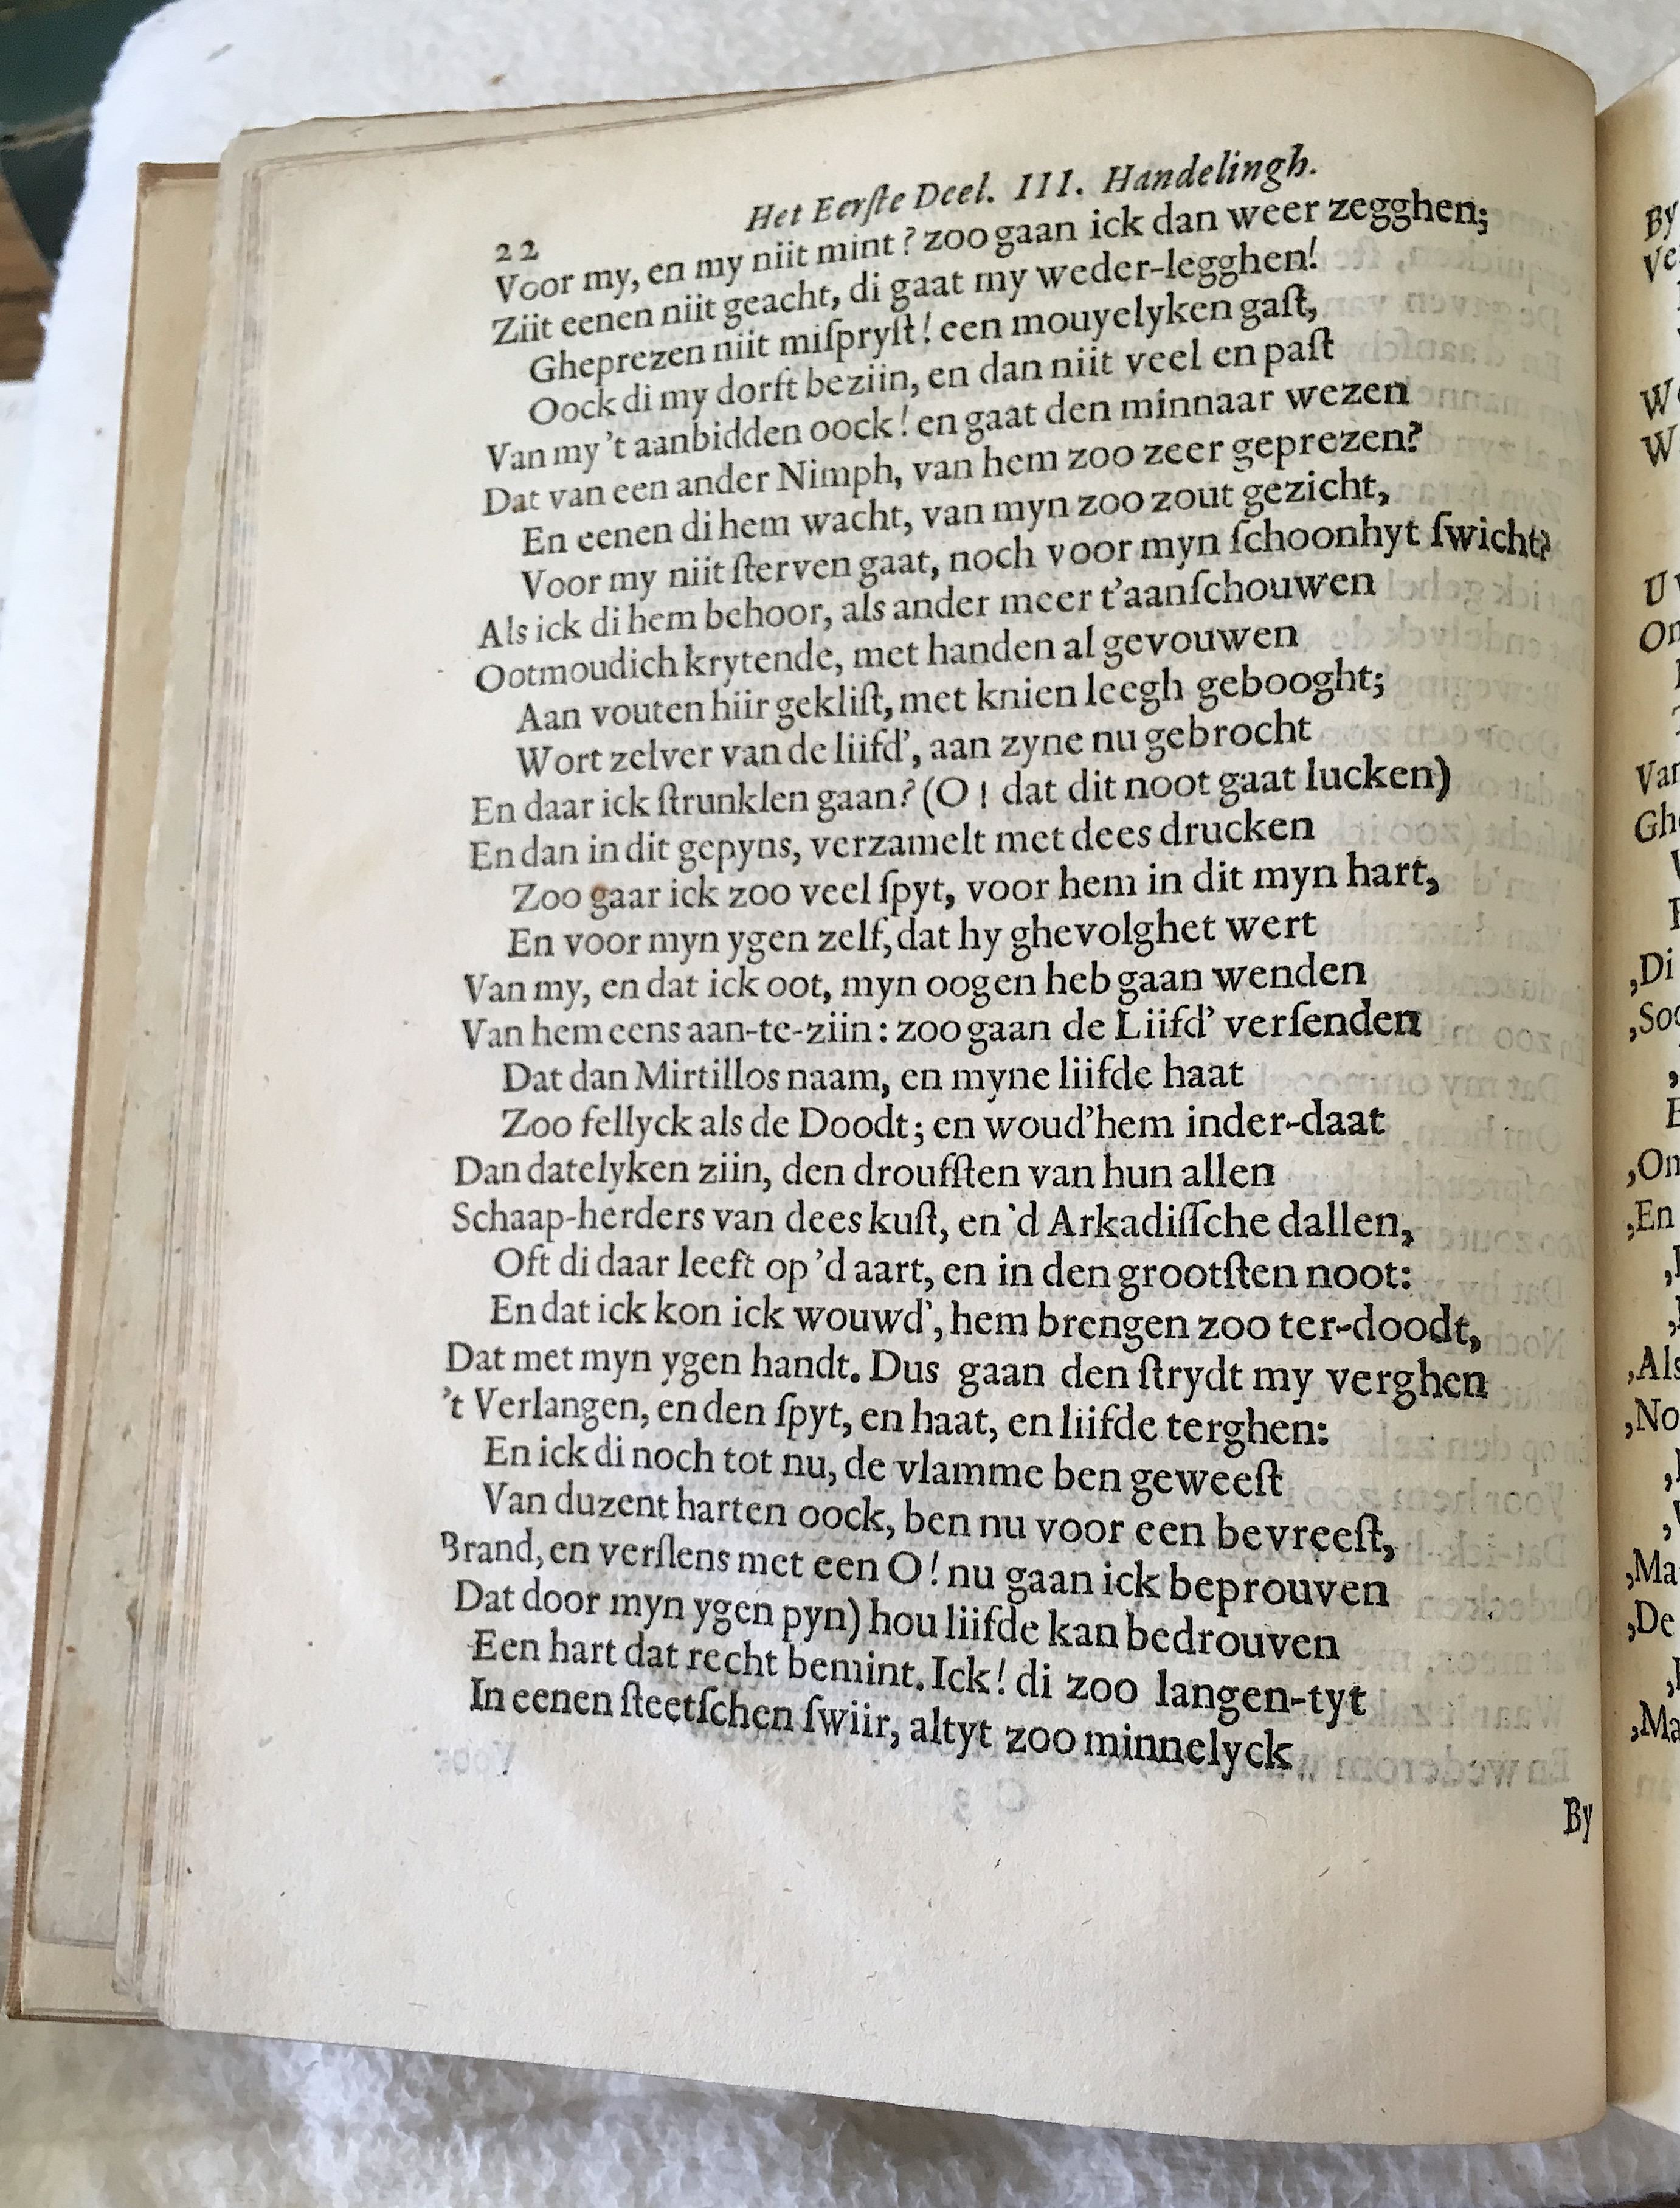 22 Het Eerſte Deel. III. Handelingh.
Voor my, en my niit mint? zoo gaan ick dan weer zegghen;
Ziit eenen niit geacht, di gaat my weder-legghen!
Gheprezen niit miſpryſt! een mouyelyken gaſt,
Oock di my dorft beziin, en dan niit veel en paſt
Van my 't aanbidden oock! en gaat den minnaar wezen
Dat van een ander Nimph, van hem zoo zeer geprezen?
En eenen di hem wacht, van myn zoo zout gezicht,
Voor my niit ſterven gaat, noch voor myn ſchoonhyt ſwicht?
Als ick di hem behoor, als ander meer t'aanſchouwen
Ootmoudich krytende, met handen al gevouwen
Aan vouten hiir gekliſt, met knien leegh gebooght;
Wort zelver van de liifd', aan zyne nu gebrocht
En daar ick ſtrunklen gaan? (O! dat dit noot gaat lucken)
En dan in dit gepyns, verzamelt met dees drucken
Zoo gaar ick zoo veel ſpyt, voor hem in dit myn hart,
En voor myn ygen zelf, dat hy ghevolghet wert
Van my, en dat ick oot, myn oogen heb gaan wenden
Van hem eens aan-te-ziin: zoo gaan de Liifd' verſenden
Dat dan Mirtillos naam, en myne liifde haat
Zoo fellyck als de Doodt; en woud'hem inder-daat
Dan datelyken ziin, den droufſten van hun allen
Schaap-herders van dees kuſt, en 'd Arkadiſſche dallen,
Oft di daar leeft op 'd aart, en in den grootſten noot:
En dat ick kon ick wouwd', hem brengen zoo ter-doodt,
Dat met myn ygen handt. Dus gaan den ſtrydt my verghen
't Verlangen, en den ſpyt, en haat, en liifde terghen:
En ick di noch tot nu, de vlamme ben geweeſt
Van duzent harten oock, ben nu voor een bevreeſt,
Brand, en verſlens met een O! nu gaan ick beprouven
Dat door myn ygen pyn) hou liifde kan bedrouven
Een hart dat recht bemint. Ick! di zoo langen-tyt
In eenen ſteetſchen ſwiir, altyt zoo minnelyck
By
By
U
,Di
,En
,Als
,No
,De